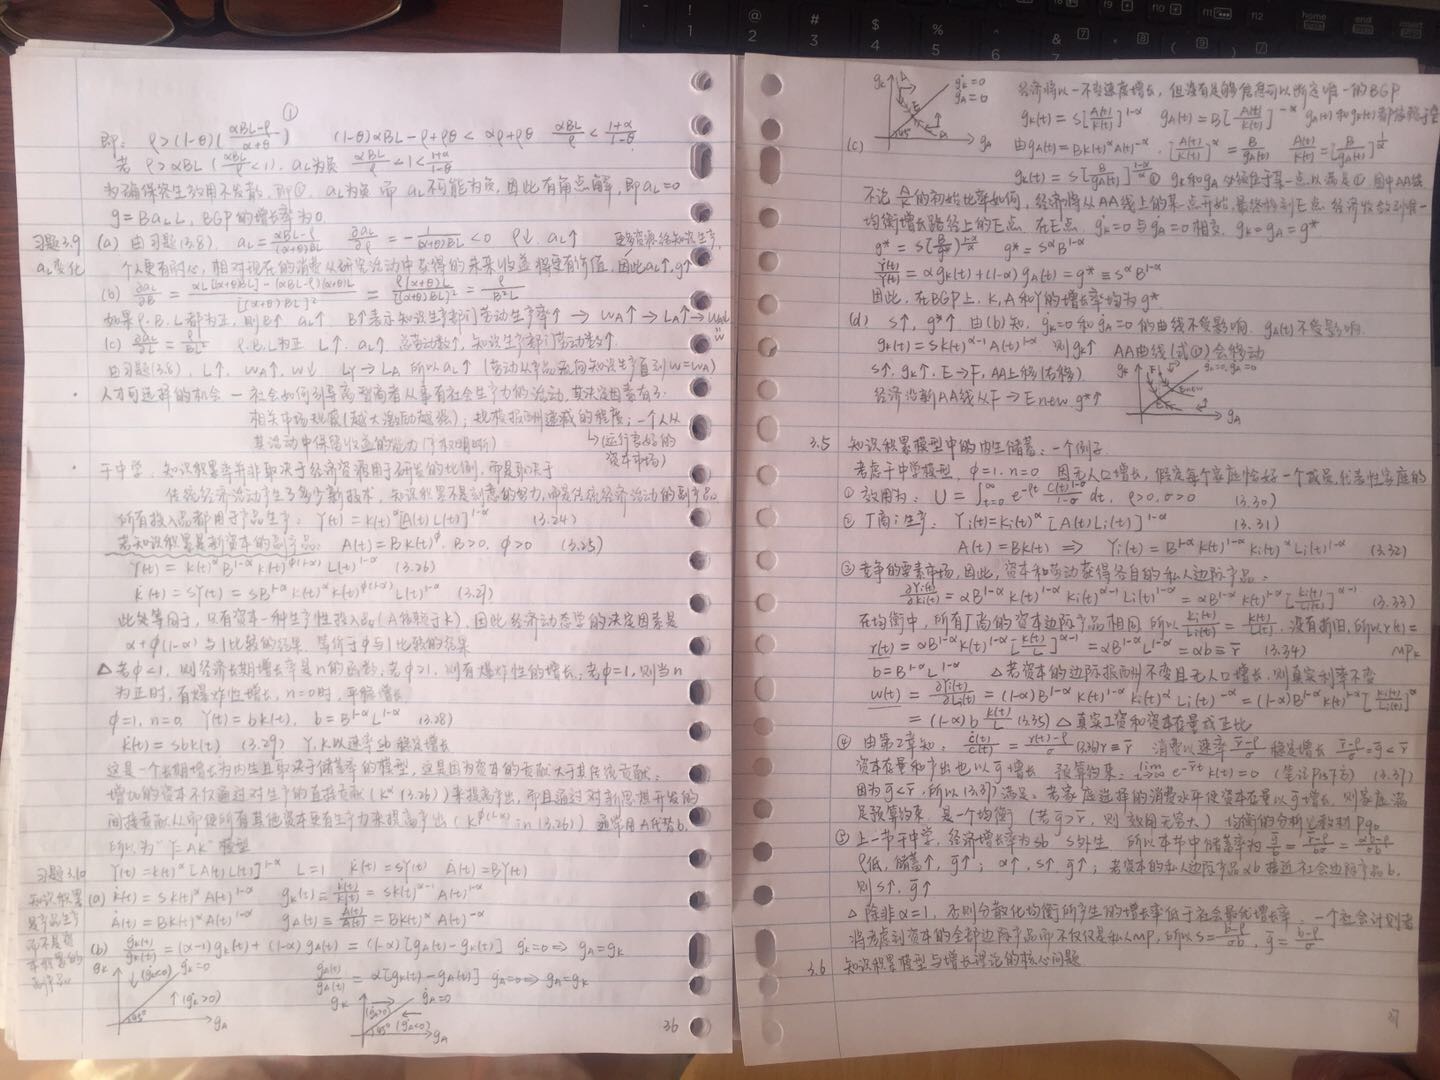 ①
即: ρ>(1-θ)(αBL-ρ/α+θ) (1-θ)αBL-ρ+ρθ < αρ+ρθ αBL/ρ < 1+α/1-θ
若 ρ>αBL (αBL/ρ<1), aL为负 αBL/ρ<1<1+α/1-θ
为确保终生效用不发散, 即①, aL为负, 而 aL不可能为负, 因此有角点解, 即aL=0
g=BaLL, BGP的增长率为0.
习题3.9 (a) 由习题(3.8), aL=αBL-ρ/(α+θ)BL ∂aL/∂ρ=-1/(α+θ)BL<0 ρ↓, aL↑ 更多资源给知识生产,
aL变化 个人更有耐心, 相对现在的消费从研究活动中获得的未来收益将更有价值, 因此aL↑, g↑
(b) ∂aL/∂B=αL[(α+θ)BL]-(αBL-ρ)(α+θ)L/[(α+θ)BL]² = ρ(α+θ)L/[(α+θ)BL]² = ρ/B²L
如果ρ.B.L都为正, 则B↑ aL↑ B↑表示知识生产部门劳动生产率↑ → wA↑ → LA↑ →
(c) ∂aL/∂L=ρ/BL² ρ.B.L为正 L↑, aL↑, 总劳动数↑, 知识生产部门劳动数↑.
由习题(3.8), L↑, wA↑, w↓ LY→LA 所以aL↑ (劳动从产品流向知识生产直到w=wA)
· 人才可选择的机会 — 社会如何引导高智商者从事有社会生产力的活动, 其决定因素有3:
相关市场规模(越大激励越强); 规模报酬递减的程度; 一个人从
其活动中保留收益的能力(产权明晰) ↳(运行良好的
资本市场)
· 干中学. 知识积累率并非取决于经济资源用于研发的比例, 而是取决于
传统经济活动产生了多少新技术. 知识积累不是刻意的努力, 而是传统经济活动的副产品.
所有投入品都用于产品生产: Y(t)=K(t)^α[A(t)L(t)]^1-α (3.24)
若知识积累是新资本的副产品: A(t)=BK(t)^φ, B>0, φ>0 (3.25)
Y(t)=K(t)^αB^1-αK(t)^φ(1-α)L(t)^1-α (3.26)
K̇(t)=sY(t)=sB^1-αK(t)^αK(t)^φ(1-α)L(t)^1-α (3.27)
此处等同于, 只有资本一种生产性投入品(A依赖于K), 因此经济动态学的决定因素是
α+φ(1-α)与1比较的结果, 等价于φ与1比较的结果
△若φ<1, 则经济长期增长率是n的函数; 若φ>1, 则有爆炸性的增长; 若φ=1, 则当n
为正时, 有爆炸性增长, n=0时, 平稳增长
φ=1, n=0, Y(t)=bK(t), b=B^1-αL^1-α (3.28)
K̇(t)=sbK(t) (3.29) Y,K以速率sb稳定增长
这是一个长期增长为内生且取决于储蓄率的模型, 这是因为资本的贡献大于其传统贡献:
增加的资本不仅通过对生产的直接贡献(K^α (3.26))来提高产出, 而且通过对新思想开发的
间接贡献从而使所有其他资本更有生产力来提高产出(K^φ(1-α) in (3.26)) 通常用A代替b,
所以为“Y=AK”模型
习题3.10 Y(t)=K(t)^α[A(t)L(t)]^1-α L=1 K̇(t)=sY(t) Ȧ(t)=BY(t)
知识积累 (a) K̇(t)=sK(t)^αA(t)^1-α gK(t)=K̇(t)/K(t)=sK(t)^α-1A(t)^1-α
是产品生产 Ȧ(t)=BK(t)^αA(t)^1-α gA(t)≡Ȧ(t)/A(t)=BK(t)^αA(t)^-α
而不是资
本积累的 (b) ġK(t)/gK(t)=(α-1)gK(t)+(1-α)gA(t)=(1-α)[gA(t)-gK(t)] ġK=0⇒gA=gK
副产品
ġA(t)/gA(t)=α[gK(t)-gA(t)] ġA=0⇒gA=gK
gK (ġK<0) ġK=0 ↑(ġK>0) 45° gA
gK (ġA>0) ġA=0 45° (ġA<0) gA
36
gK A E ġK=0 ġA=0 45° A gA
经济将以一不变速度增长, 但没有足够信息可以断定唯一的BGP
(c) gK(t)=s[A(t)/K(t)]^1-α gA(t)=B[A(t)/K(t)]^-α
由gA(t)=BK(t)^αA(t)^-α, [A(t)/K(t)]^α=B/gA(t) A(t)/K(t)=[B/gA(t)]^1/α
gK(t)=s[B/gA(t)]^1-α/α ① gK和gA必须位于某一点以满足① 图中AA线
不论A/K的初始比率如何, 经济将从AA线上的某一点开始, 最终移到E点. 经济收敛到唯一
均衡增长路径上的E点. 在E点, ġK=0与ġA=0相交, gK=gA=g*
g*=s[B/g*]^1-α/α g*=s^αB^1-α
Ẏ(t)/Y(t)=αgK(t)+(1-α)gA(t)=g*≡s^αB^1-α
因此, 在BGP上, K,A和Y的增长率均为g*.
(d) s↑, g*↑ 由(b)知, ġK=0和ġA=0的曲线不受影响, gA(t)不受影响.
gK(t)=sK(t)^α-1A(t)^1-α 则gK↑ AA曲线(式①)会移动
s↑, gK↑, E→F, AA上移(右移).
经济沿新AA线从F→Enew g*↑
gK F ġK=0, ġA=0 Enew E gA
3.5 知识积累模型中的内生储蓄: 一个例子
考虑干中学模型, φ=1, n=0 因无人口增长, 假定每个家庭恰好一个成员, 代表性家庭的
① 效用为: U=∫t=0^∞ e^-ρt C(t)^1-σ/1-σ dt, ρ>0, σ>0 (3.30)
② 厂商i生产: Yi(t)=Ki(t)^α[A(t)Li(t)]^1-α (3.31)
A(t)=BK(t) ⇒ Yi(t)=B^1-αK(t)^1-αKi(t)^αLi(t)^1-α (3.32)
③ 竞争的要素市场, 因此, 资本和劳动获得各自的私人边际产品:
∂Yi(t)/∂Ki(t)=αB^1-αK(t)^1-αKi(t)^α-1Li(t)^1-α=αB^1-αK(t)^1-α[Ki(t)/Li(t)]^α-1 (3.33)
在均衡中, 所有厂商的资本边际产品相同, 所以Ki(t)/Li(t)=K(t)/L, 没有折旧, 所以r(t)=
MPK
r(t)=αB^1-αK(t)^1-α[K(t)/L]^α-1=αB^1-αL^1-α=αb≡r̄ (3.34)
b=B^1-αL^1-α △若资本的边际报酬不变且无人口增长, 则真实利率不变
w(t)=∂Yi(t)/∂Li(t)=(1-α)B^1-αK(t)^1-αKi(t)^αLi(t)^-α=(1-α)B^1-αK(t)^1-α[Ki(t)/Li(t)]^α
=(1-α)b K(t)/L (3.35) △真实工资和资本存量成正比
④ 由第2章知: Ċ(t)/C(t)=r(t)-ρ/σ (3.36) r≡r̄ 消费以速率r̄-ρ/σ稳定增长 r̄-ρ/σ=ḡ<r̄
资本存量和产出也以ḡ增长 预算约束: lim t→∞ e^-r̄tK(t)=0 (3.37)
因为ḡ<r̄, 所以(3.37)满足. 若家庭选择的消费水平使资本存量以ḡ增长, 则家庭满
足预算约束, 是一个均衡(若ḡ>r̄, 则效用无穷大) 均衡的分析见教材P90
⑤ 上一节干中学, 经济增长率为sb s外生 所以本节中储蓄率为ḡ/b=r̄-ρ/bσ=αb-ρ/σb
ρ低, 储蓄↑, ḡ↑; α↑, s↑, ḡ↑; 若资本的私人边际产品αb接近社会边际产品b,
则s↑, ḡ↑
△除非α=1, 否则分散化均衡所产生的增长率低于社会最优增长率. 一个社会计划者
将考虑到资本的全部边际产品而不仅仅是私人MP, 所以s=b-ρ/σb, ḡ=b-ρ/σ
3.6 知识积累模型与增长理论的核心问题
37